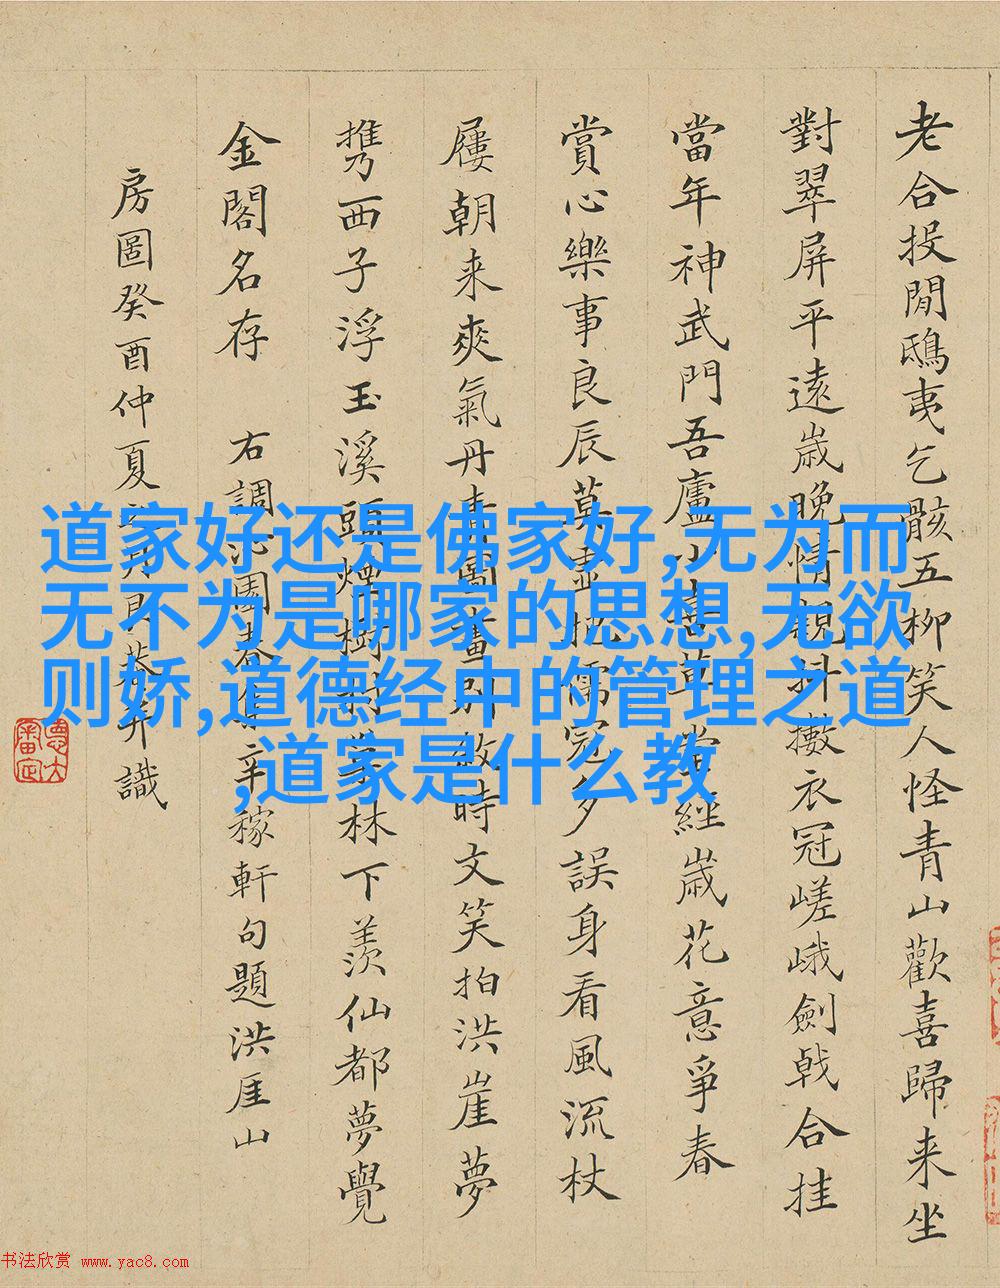 老合投閒鴟夷乞骸五柳笑人怪青山歡喜歸来坐
對翠屏平遠歲晚情親抖擻衣冠嵯峨劍戟合挂
當年神武門吾廬小草堂經歲花意爭春
賞心樂事良辰莫虛抛儒冠多誤身看風流杖
屨朝来爽氣丹青圖畫別做時文笑拍洪崖夢
携西子浮玉溪頭煙樹林下羨仙都夢覺
金閣名存 右調沁園春集辛稼軒句題洪厓山
房圖癸酉仲夏識
道家好还是佛家好,无为而
无不为是哪家的思想,无欲
则娇,道德经中的管理之道
,道家是什么教
书法欣赏 www.yac8.com